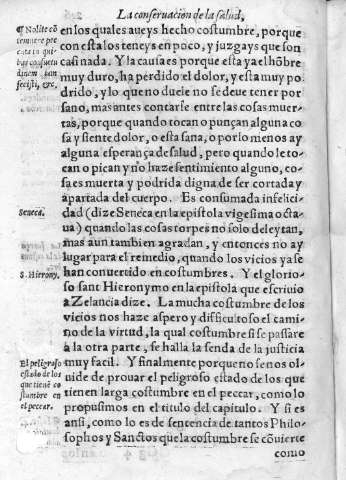 La conseruacion de la salud.
¶ Nolite cō
temnere pec
cata in qui-
bus consuetu
dinem iam
fecisti, &c,
en los quales aueys hecho costumbre, porque
con esta los teneys en poco, y juzgays que son
casi nada. Y la causa es porque esta ya el hōbre
muy duro, ha perdido el dolor, y esta muy po
drido, y lo que no duele no se deue tener por
sano, mas antes contarse entre las cosas muer-
tas, porque quando tocan o punçan alguna co
sa y siente dolor, o esta sana, o por lo menos ay
alguna esperança de salud, pero quando le to-
can o pican y no haze sentimiento alguno, co-
sa es muerta y podrida digna de ser cortada y
apartada del cuerpo. Es consumada infelici-
Seneca.
dad (dize Seneca en la epistola vigesima octa-
ua) quando las cosas torpes no solo deleytan,
mas aun tambien agradan, y entonces no ay
lugar para el remedio, quando los vicios ya se
han conuertido en costumbres. Y el glorio-
S. Hierony.
so sant Hieronymo en la epistola que escriuio
a Zelancia dize. La mucha costumbre de los
vicios nos haze aspero y difficultoso el cami-
no de la virtud, la qual costumbre si se passare
a la otra parte, se halla la senda de la justicia
El peligroso
estado de los
que tienē co
stumbre en
el peccar.
muy facil. Y finalmente porque no se nos ol-
uide de prouar el peligroso estado de los que
tienen larga costumbre en el peccar, como lo
propusimos en el titulo del capitulo. Y si es
ansi, como lo es de sentencia de tantos Philo-
sophos y Sanctos que la costumbre se cōuierte
como